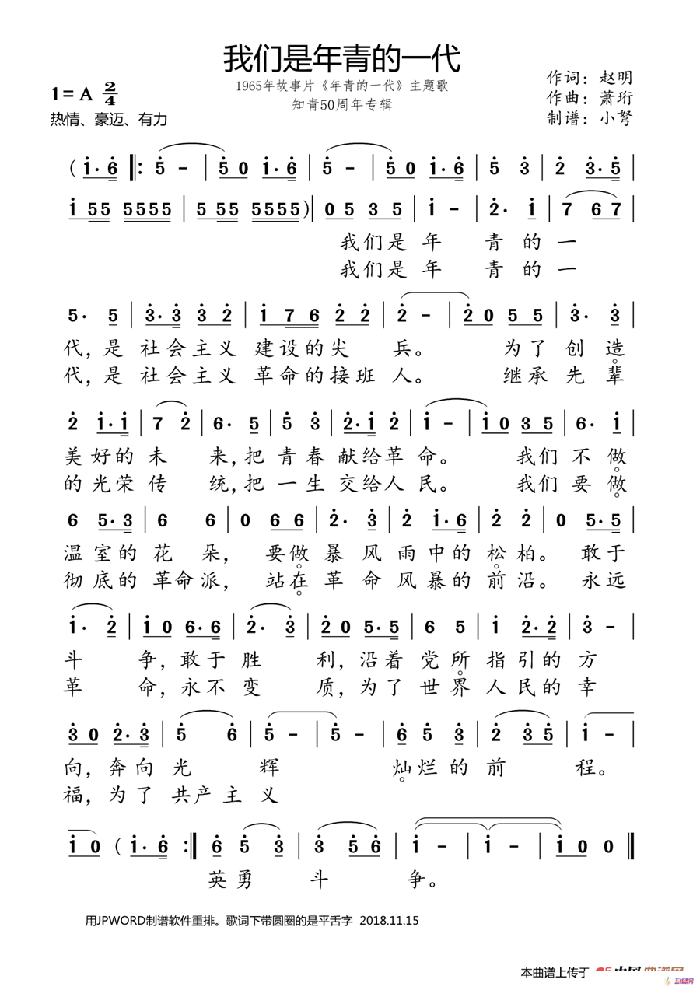 我们是年青的一代
1965年故事片《年青的一代》主题歌
知青50周年专辑
1=A 2/4
热情、豪迈、有力
作词：赵明
作曲：萧珩
制谱：小弩
(1·6 |: 5 - | 50 1·6 | 50 1·6 | 5 3 | 2 3·5 |
1 55 5555 | 5 55 5555)| 05 35 | 1 - | 2· 1 | 7 67 |
我们是年 青的一
我们是年 青的一
5· 5 | 3·3 32 | 176 22 | 2 - | 2055 | 3· 3 |
代，是 社会主义 建设的尖 兵。 为了创造
代，是 社会主义 革命的接班 人。 继承先辈
2 1·1 | 72 | 6· 5 | 53 | 2·1 2 | 1 - | 1035 | 6· 1 |
美好的未 来，把青春献给革命。 我们不做
的光荣传 统，把一生交给人民。 我们要做
6 5·3 | 6 6 | 0 66 | 2· 3 | 2 1 2 | 3 5 | 5 - | 50 5·5 |
温室的花朵， 要做暴风雨中的松柏。敢于
彻底的革命派， 站在革命风暴的前沿。永远
1· 2 | 10 6·6 | 2· 3 | 20 5·5 | 6 5 | 1 1 2 | 3 - |
斗 争，敢于胜 利，沿着党所指引的方
革 命，永不变 质，为了世界人民的幸
30 2·3 | 5 6 | 5 - | 5 - | 65 3 | 2 35 | 1 - |
向，奔向光 辉 灿烂的前 程。
福，为了共产主义
10 (1·6 :| 5 3 | 3 56 | 1 - | 1 - | 100 ‖
英勇斗 争。
用JPWORD制谱软件重排。歌词下带圆圈的是平舌字 2018.11.15
本曲谱上传于